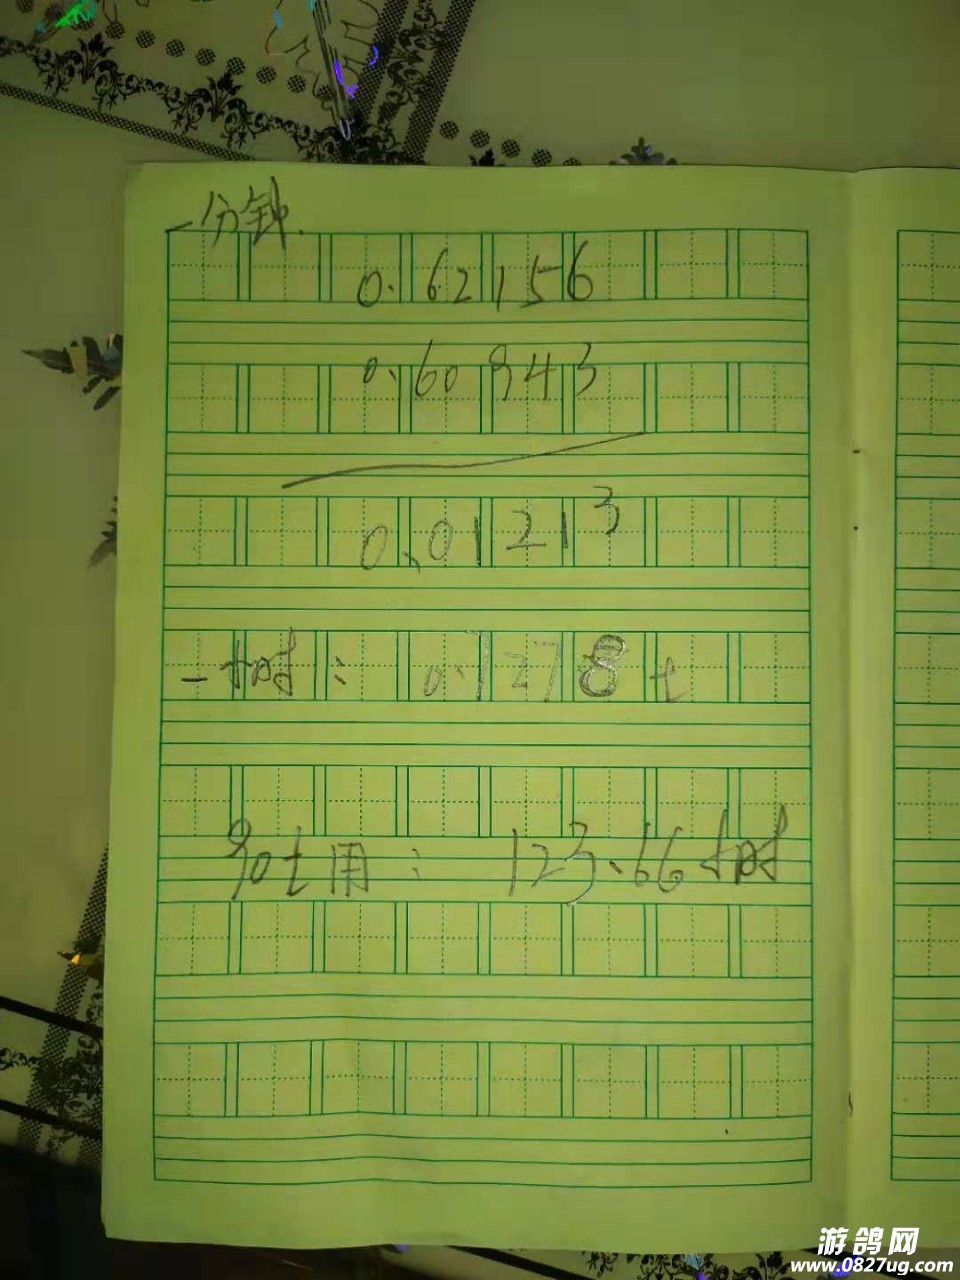 一分钟.
0.62156
0.60943
0.01213
一小时: 0.7278t
90t用: 123.66小时
游鸽网
www.0827ug.com